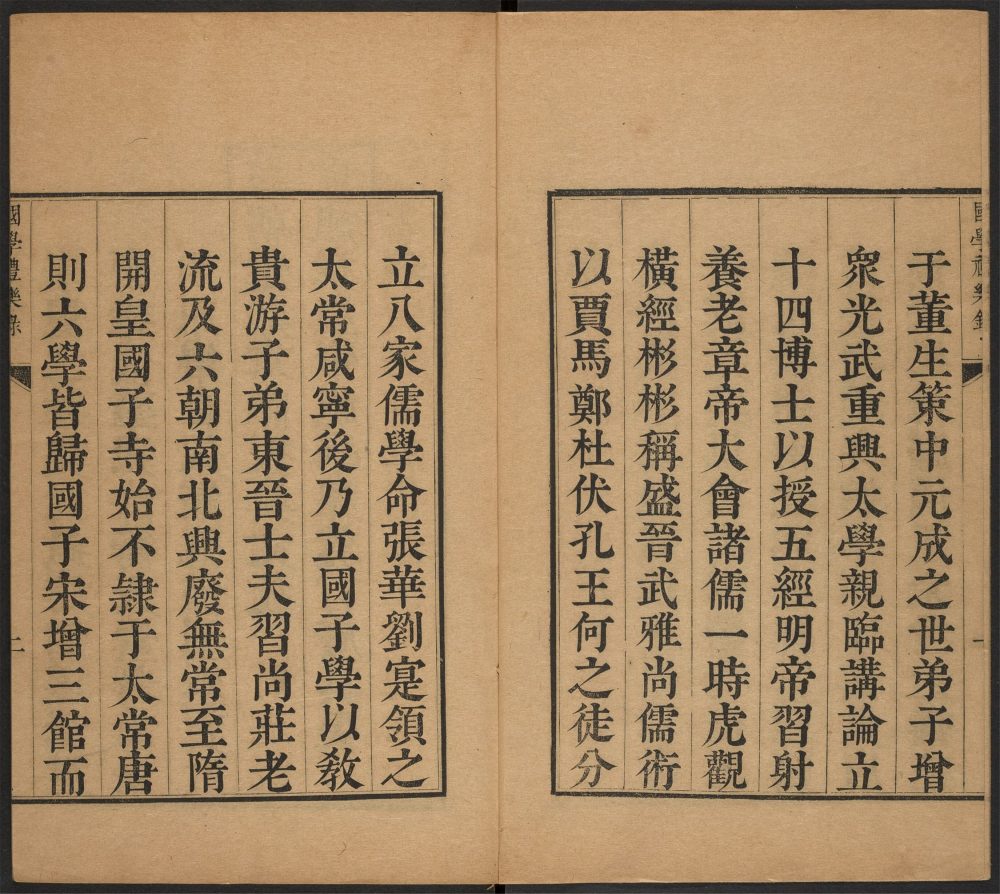 國學禮樂錄
一
于董生策中元成之世弟子增
衆光武重興太學親臨講論立
十四博士以授五經明帝習射
養老章帝大會諸儒一時虎觀
橫經彬彬稱盛晉武雅尚儒術
以賈馬鄭杜伏孔王何之徒分
立八家儒學命張華劉寔領之
太常咸寧後乃立國子學以敎
貴游子弟東晉士夫習尚莊老
流及六朝南北興廢無常至隋
開皇國子寺始不隷于太常唐
則六學皆歸國子宋增三館而
國學禮樂錄
二